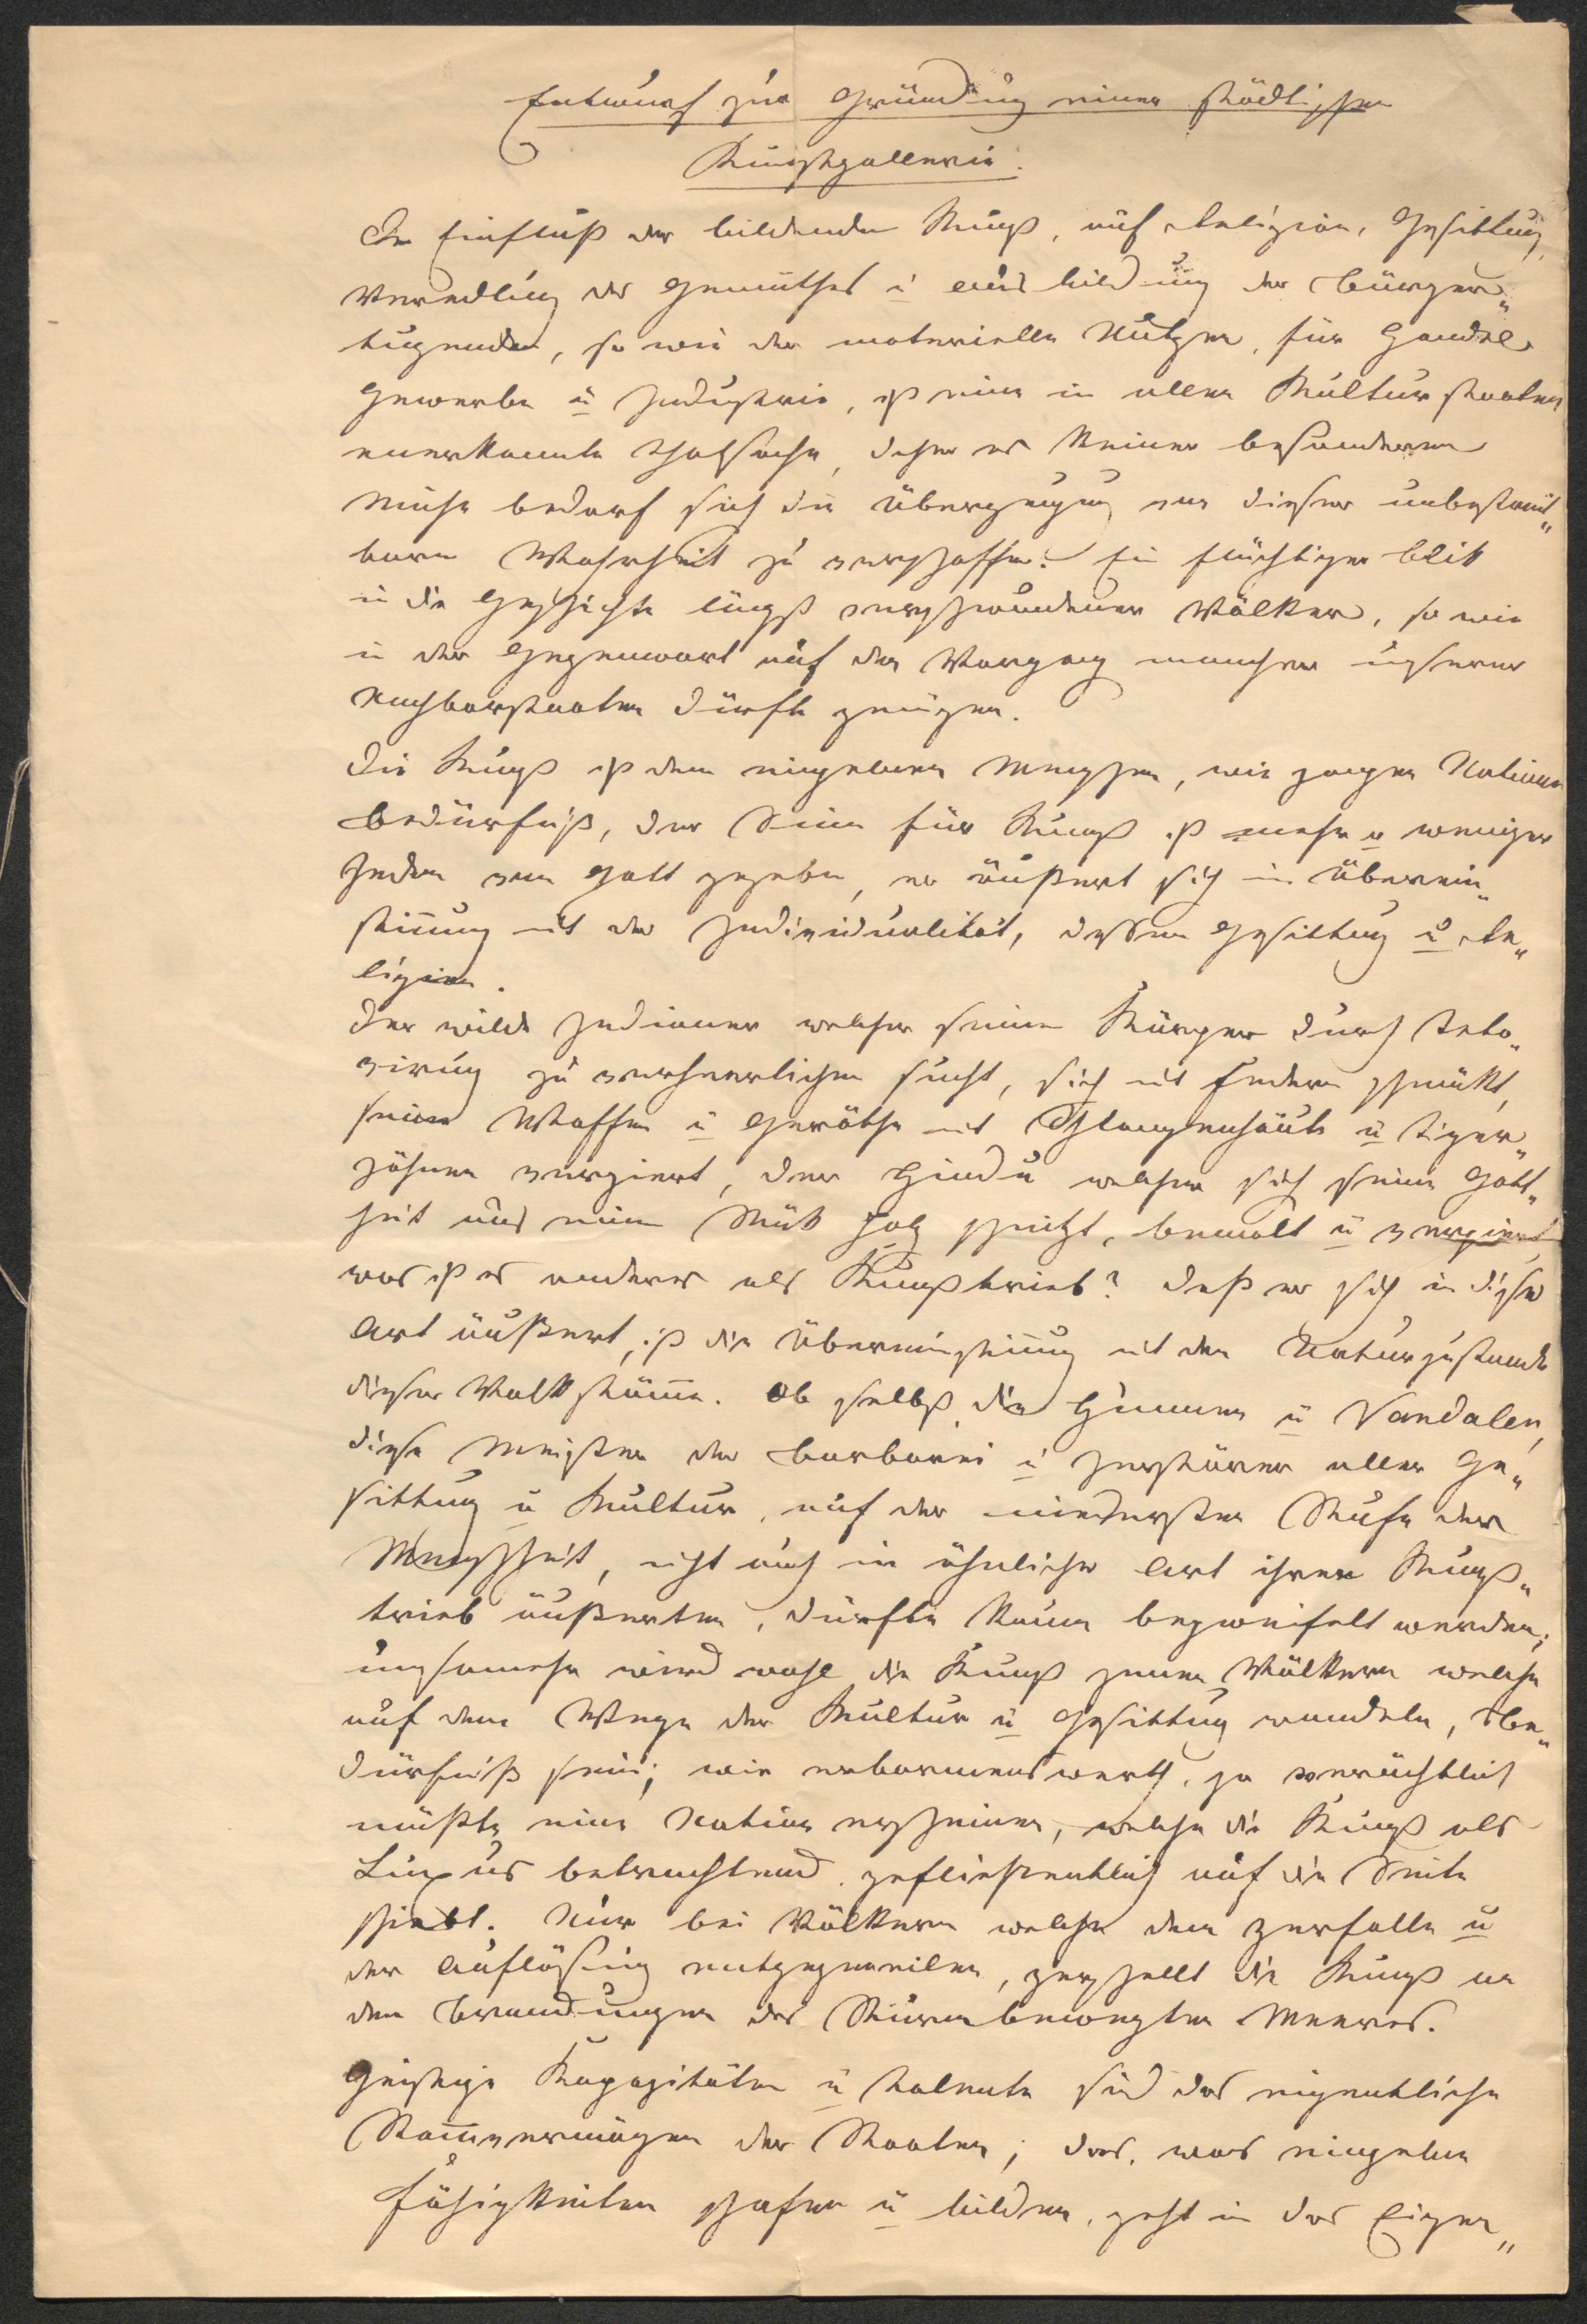 Entwurf zur Gründung einer städtischen
Kunstgallerie.
Der Einfluß der bildenden Kunst, auf Religion, Gesittung,
Veredlung des Gemüthes u Ausbildung der Bürger„
tugenden, so wie der materielle Nutzen, für Handel
Gewerbe u Industrie, ist eine in allen Kulturstaaten
anerkannte Thatsache, daher es keiner besonderen
Mühe bedarf sich die Überzeugung von dieser unbestreit„
baren Wahrheit zu verschaffen. Ein flüchtiger Blik
in die Geschichte längst verschwundener Völker, so wie
in der Gegenwart auf den Vorgang mancher unserer
Nachbarstaaten dürfte genügen.
Die Kunst ist dem einzelnen Menschen, wie ganzen Nationen
Bedürfniß, der Sinn für Kunst ist mehr u weniger
Jedem von Gott gegeben, er äußert sich in Überein„
stimmung mit der Individualität, dessen Gesittung u Re„
ligion.
Der wilde Indianer welcher seinen Körper durch Teto„
virung zu verherrlichen sucht, sich mit Federn schmükt,
seine Waffen u Geräthe mit Schlangenhäute u Tiger„
zähnen verziert, der Hindu welcher sich seine Gott„
heit aus einem Stük Holz schnitzt, bemalt u verziert,
was ist es anderes als Kunsttrieb? Daß er sich in dieser
Art äußert, ist die Übereinstimmung mit dem Naturzustande
dieser Volksstämme. Ob selbst die Hunnen u Vandalen,
diese Meister der Barbarei u Zerstörer aller Ge„
sittung u Kultur, auf der niedersten Stufe der
Menschheit, nicht auch in ähnlicher Art ihren Kunst„
trieb äußerten, dürfte kaum bezweifelt werden;
umsomehr wird wohl die Kunst jenen Völkern welche
auf dem Wege der Kultur u Gesittung wandeln, Be„
dürfniß sein; wie erbarmenswerth, ja verächtlich
müßte eine Nation erscheinen, welche die Kunst als
Luxus betrachtend, gefließentlich auf die Seite
schiebt. Nur bei Völkern welche dem Zerfalle u
der Auflösung entgegeneilen, zerschellt die Kunst an
den Brandungen des Sturmbewegten Meeres.
Geistige Kapazitäten u Talente sind das eigentliche
Stammvermögen der Staaten; das, was einzelne
Fähigkeiten schafen u bilden, geht in das Eigen„